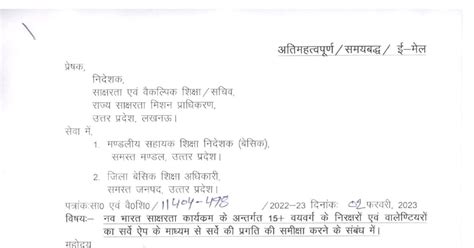 अतिमहत्वपूर्ण/समयबद्ध/ ई-मेल
प्रेषक,
निदेशक,
साक्षरता एवं वैकल्पिक शिक्षा/सचिव,
राज्य साक्षरता मिशन प्राधिकरण,
उत्तर प्रदेश, लखनऊ।
सेवा में,
1. मण्डलीय सहायक शिक्षा निदेशक (बेसिक),
समस्त मण्डल, उत्तर प्रदेश।
2. जिला बेसिक शिक्षा अधिकारी,
समस्त जनपद, उत्तर प्रदेश।
पत्रांकःसा0 एवं वै0शि0/11404-478 /2022-23 दिनांकः 02 फरवरी, 2023
विषयः- नव भारत साक्षरता कार्यकम के अन्तर्गत 15+ वयवर्ग के निरक्षरों एवं वालेण्टियरों
का सर्वे ऐप के माध्यम से सर्वे की प्रगति की समीक्षा करने के संबंध में।
महोदय